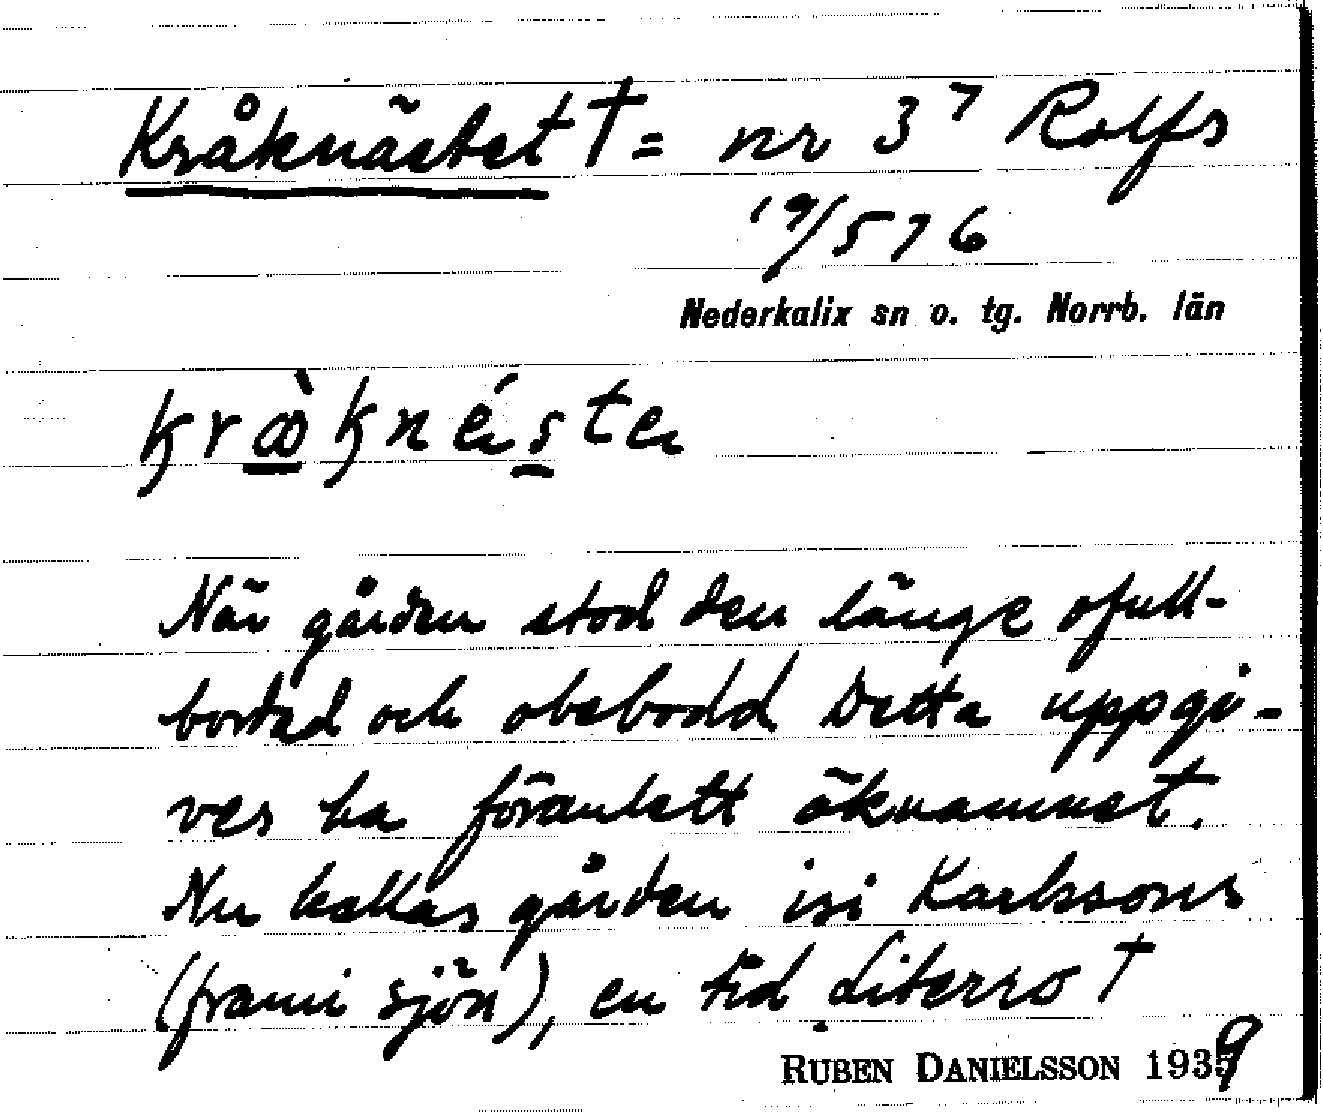 Kråknästet † = nr 3⁷ Rolfs
19/576
Nederkalix sn o. tg. Norrb. län
När gården stod den länge ofull-
bordad och obebodd Detta uppgi-
ves ha föranlett öknamnet.
Nu kallas gården isi Karlssons
(frami sjön), en tid Literro †
RUBEN DANIELSSON 1939